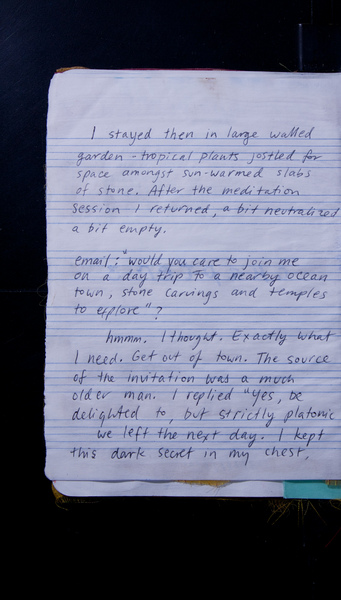 I stayed then in large walled
garden - tropical plants jostled for
space amongst sun-warmed slabs
of stone. After the meditation
session I returned, a bit neutralized
a bit empty.
email: "would you care to join me
on a day trip to a nearby ocean
town, stone carvings and temples
to explore"?
hmmm. I thought. Exactly what
I need. Get out of town. The source
of the invitation was a much
older man. I replied "Yes, be
delighted to, but strictly platonic
we left the next day. I kept
this dark secret in my chest,